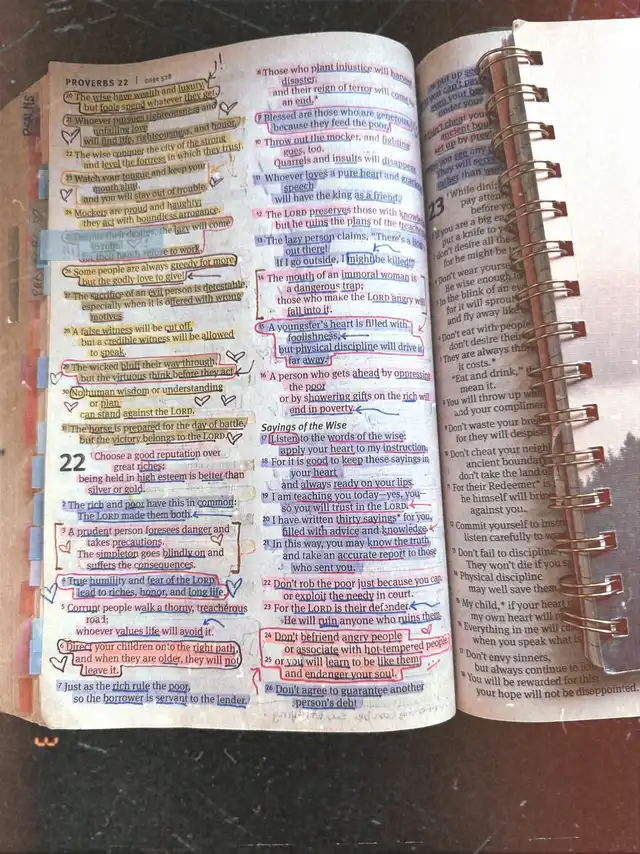 PROVERBS 22
20 The wise have wealth and luxury,
but fools spend whatever they get.
21 Whoever pursues righteousness and
unfailing love
will find life, righteousness, and honor.
22 The wise conquer the city of the strong
and level the fortress in which they trust.
23 Watch your tongue and keep your
mouth shut,
and you will stay out of trouble.
24 Mockers are proud and haughty;
they act with boundless arrogance.
the lazy will come
refuse to work.
26 Some people are always greedy for more,
but the godly love to give!
27 The sacrifice of an evil person is detestable,
especially when it is offered with wrong
motives.
28 A false witness will be cut off,
but a credible witness will be allowed
to speak.
29 The wicked bluff their way through,
but the virtuous think before they act.
30 No human wisdom or understanding
or plan
can stand against the LORD.
31 The horse is prepared for the day of battle,
but the victory belongs to the LORD.
22 Choose a good reputation over
great riches;
being held in high esteem is better than
silver or gold.
2 The rich and poor have this in common:
The LORD made them both.
3 A prudent person foresees danger and
takes precautions.
The simpleton goes blindly on and
suffers the consequences.
4 True humility and fear of the LORD
lead to riches, honor, and long life.
5 Corrupt people walk a thorny, treacherous
road;
whoever values life will avoid it.
6 Direct your children onto the right path,
and when they are older, they will not
leave it.
7 Just as the rich rule the poor,
so the borrower is servant to the lender.
8 Those who plant injustice will harvest
disaster,
and their reign of terror will come to
an end.*
9 Blessed are those who are generous,
because they feed the poor.
10 Throw out the mocker, and fighting
goes, too.
Quarrels and insults will disappear.
11 Whoever loves a pure heart and gracious
speech
will have the king as a friend.
12 The LORD preserves those with knowledge,
but he ruins the plans of the treacherous.
13 The lazy person claims, "There's a lion
out there!
If I go outside, I might be killed!"
14 The mouth of an immoral woman is
a dangerous trap;
those who make the LORD angry will
fall into it.
15 A youngster's heart is filled with
foolishness,
but physical discipline will drive it
far away.
16 A person who gets ahead by oppressing
the poor
or by showering gifts on the rich will
end in poverty.
Sayings of the Wise
17 Listen to the words of the wise;
apply your heart to my instruction.
18 For it is good to keep these sayings in
your heart
and always ready on your lips.
19 I am teaching you today—yes, you—
so you will trust in the LORD.
20 I have written thirty sayings* for you,
filled with advice and knowledge.
21 In this way, you may know the truth
and take an accurate report to those
who sent you.
22 Don't rob the poor just because you can,
or exploit the needy in court.
23 For the LORD is their defender.
He will ruin anyone who ruins them.
24 Don't befriend angry people
or associate with hot-tempered people,
25 or you will learn to be like them
and endanger your soul.
26 Don't agree to guarantee another
person's debt
23 While dining
pay attention
before you
If you are a big eater
put a knife to your
don't desire all the
for he might be
Don't wear yourself
Be wise enough
In the blink of an eye
for it will sprout
and fly away like
Don't eat with people
don't desire their
They are always thinking
it costs.*
"Eat and drink,"
mean it.
You will throw up
and your compliments
Don't waste your breath
for they will despise
Don't cheat your neighbor
ancient boundary
don't take the land of
For their Redeemer* is
he himself will bring
against you.
Commit yourself to instruction
listen carefully to
Don't fail to discipline
They won't die if you
Physical discipline
may well save them
My child,* if your heart
my own heart will
Everything in me will
when you speak what is
Don't envy sinners,
but always continue to
18 You will be rewarded for this;
your hope will not be disappointed.